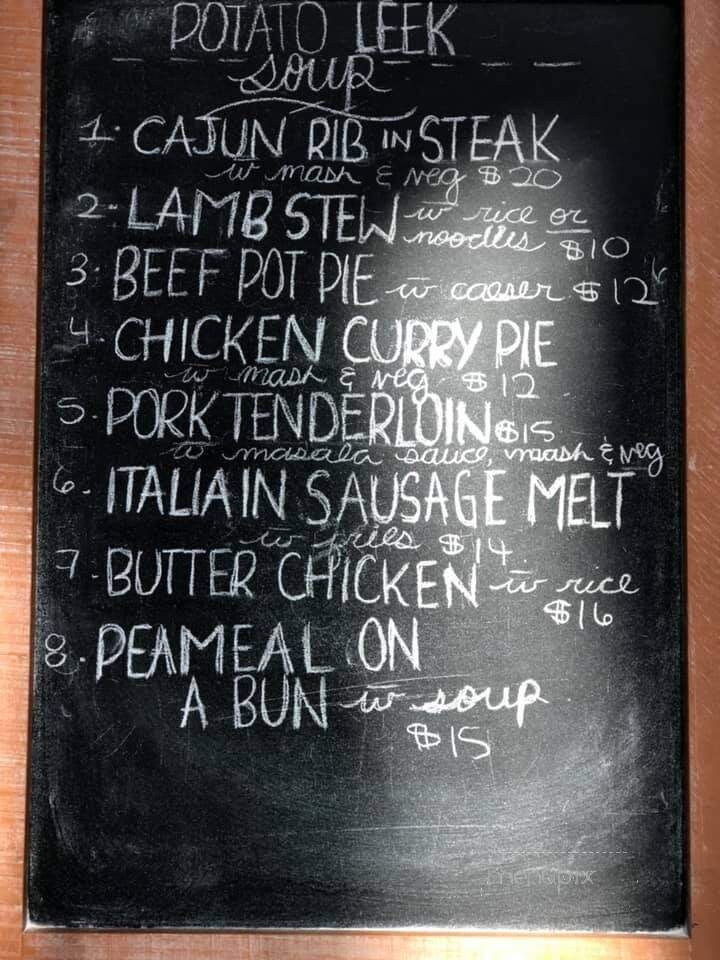 POTATO LEEK
soup
1. CAJUN RIB IN STEAK
w mash & veg $20
2- LAMB STEW w rice or
noodles $10
3. BEEF POT PIE w caeser $12
4. CHICKEN CURRY PIE
w mash & veg $12
5. PORK TENDERLOIN $15
w masala sauce, mash & veg
6- ITALIAIN SAUSAGE MELT
w fries $14
7- BUTTER CHICKEN w rice
$16
8. PEAMEAL ON
A BUN w soup
$15
menupix